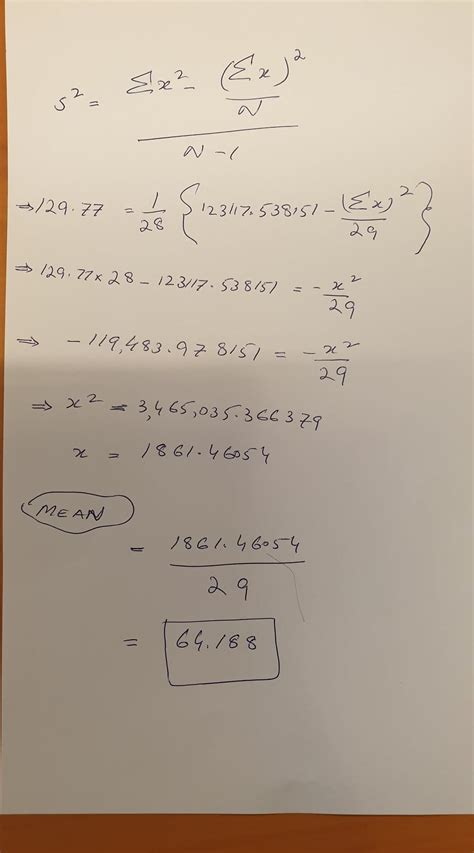 s² = (Σx² - (Σx)²/N) / (N-1)
⇒ 129.77 = 1/28 {123117.538151 - (Σx)²/29}
⇒ 129.77 × 28 - 123117.538151 = -x²/29
⇒ -119,483.978151 = -x²/29
⇒ x² = 3,465,035.366379
x = 1861.46054
MEAN
= 1861.46054/29
= 64.188